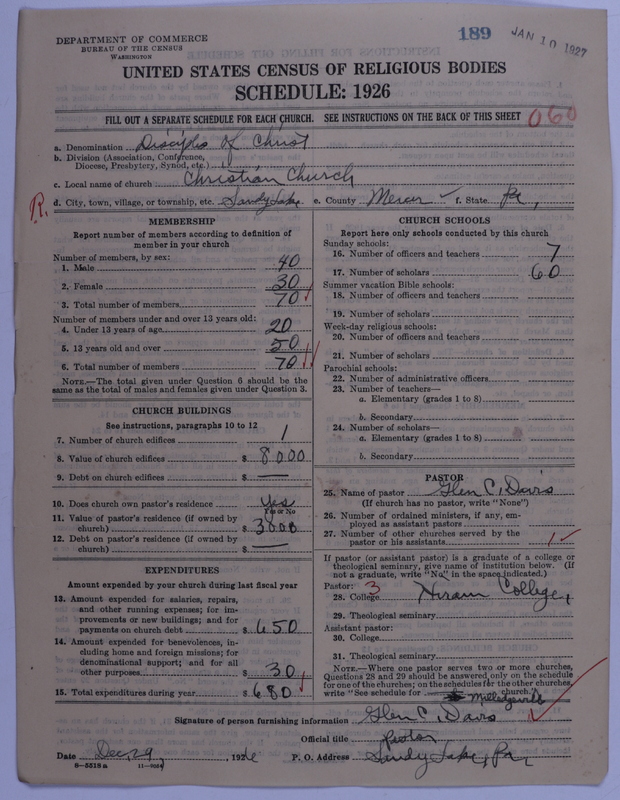 189
JAN 10 1927
DEPARTMENT OF COMMERCE
BUREAU OF THE CENSUS
WASHINGTON
UNITED STATES CENSUS OF RELIGIOUS BODIES
SCHEDULE: 1926
FILL OUT A SEPARATE SCHEDULE FOR EACH CHURCH. SEE INSTRUCTIONS ON THE BACK OF THIS SHEET
060
a. Denomination Disciples of Christ
b. Division (Association, Conference,
Diocese, Presbytery, Synod, etc.)
c. Local name of church Christian Church
R. d. City, town, village, or township, etc. Sandy Lake e. County Mercer f. State Pa,
MEMBERSHIP
Report number of members according to definition of
member in your church
Number of members, by sex:
1. Male 40
2. Female 30
3. Total number of members 70
Number of members under and over 13 years old:
4. Under 13 years of age 20
5. 13 years old and over 50
6. Total number of members 70
NOTE.—The total given under Question 6 should be the
same as the total of males and females given under Question 3.
CHURCH BUILDINGS
See instructions, paragraphs 10 to 12
7. Number of church edifices 1
8. Value of church edifices $ 8000
9. Debt on church edifices $ —
10. Does church own pastor's residence Yes
Yes or No
11. Value of pastor's residence (if owned by
church) $ 3000
12. Debt on pastor's residence (if owned by
church) $ —
EXPENDITURES
Amount expended by your church during last fiscal year
13. Amount expended for salaries, repairs,
and other running expenses; for im-
provements or new buildings; and for
payments on church debt $ 650
14. Amount expended for benevolences, in-
cluding home and foreign missions; for
denominational support; and for all
other purposes $ 30
15. Total expenditures during year $ 680
CHURCH SCHOOLS
Report here only schools conducted by this church
Sunday schools:
16. Number of officers and teachers 7
17. Number of scholars 60
Summer vacation Bible schools:
18. Number of officers and teachers
19. Number of scholars
Week-day religious schools:
20. Number of officers and teachers
21. Number of scholars
Parochial schools:
22. Number of administrative officers
23. Number of teachers—
a. Elementary (grades 1 to 8)
b. Secondary
24. Number of scholars—
a. Elementary (grades 1 to 8)
b. Secondary
PASTOR
25. Name of pastor Glen C. Davis
(If church has no pastor, write "None")
26. Number of ordained ministers, if any, em-
ployed as assistant pastors
27. Number of other churches served by the
pastor or his assistants 1
If pastor (or assistant pastor) is a graduate of a college or
theological seminary, give name of institution below. (If
not a graduate, write "No" in the space indicated.)
Pastor: 3
28. College Hiram College,
29. Theological seminary
Assistant pastor:
30. College
31. Theological seminary
NOTE.—Where one pastor serves two or more churches,
Questions 28 and 29 should be answered only on the schedule
for one of the churches; on the schedules for the other churches,
write "See schedule for church."
Milledgeville
Signature of person furnishing information Glen C. Davis
Official title Pastor
Date Dec, 29, 1926 P. O. Address Sandy Lake, Pa,
8—5518a